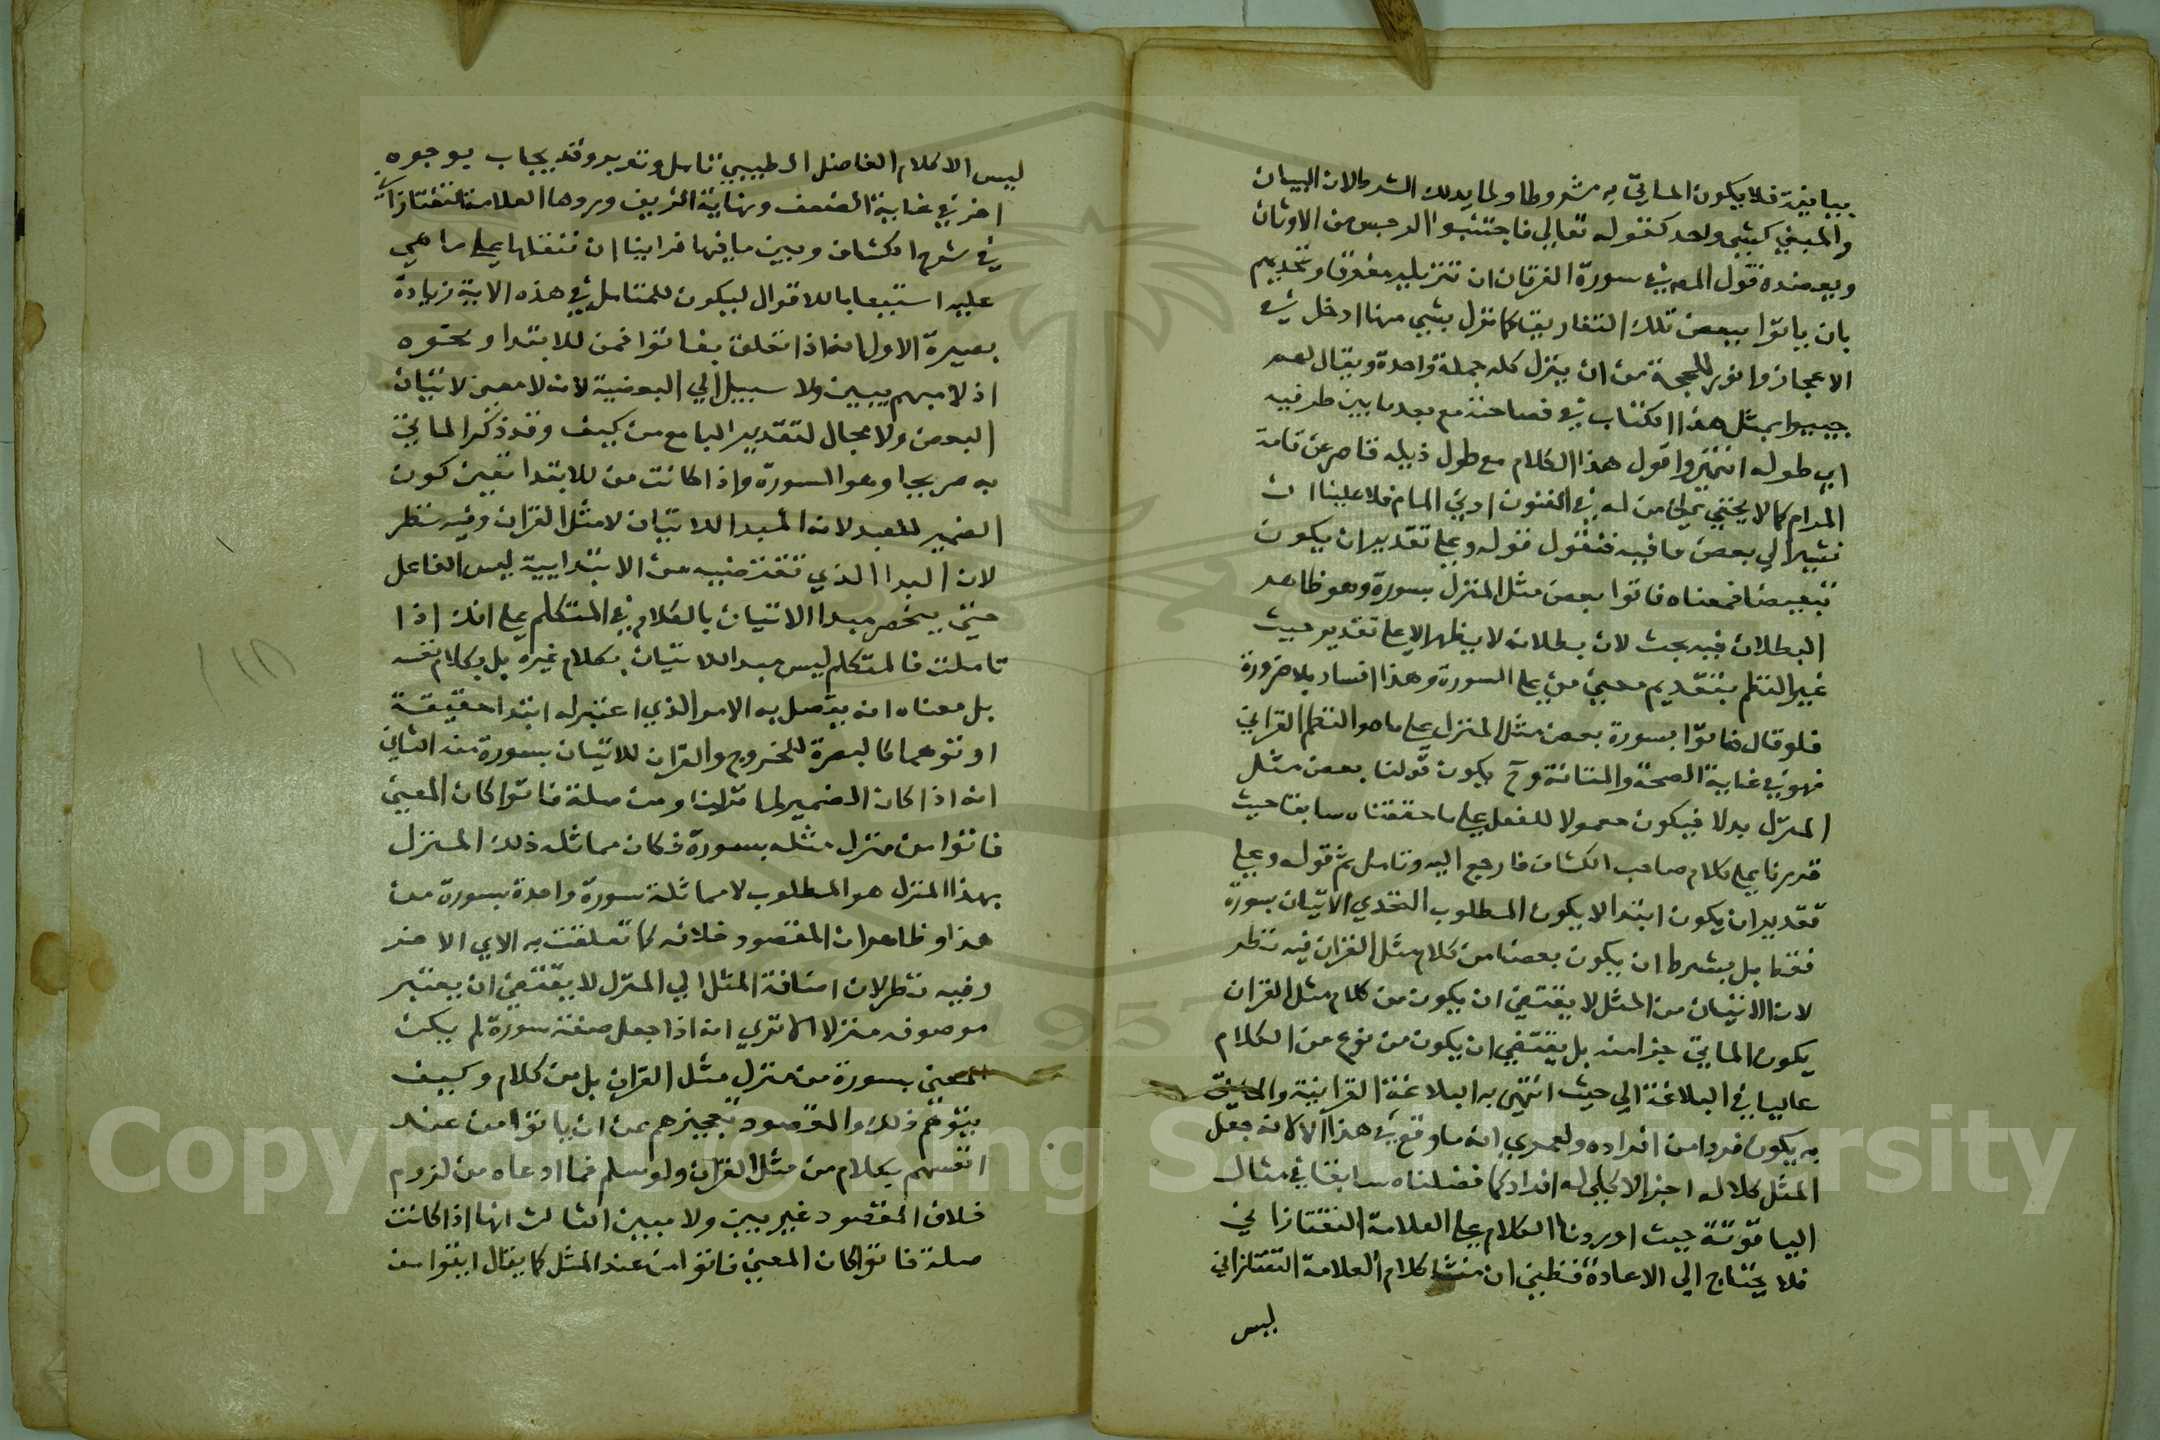 بيانية فلا يكون الماتي به مشروطا ولما يدلك الشرط لان البيان
والمبين كشي واحد كقوله تعالي فاجتنبوا الرجس من الاوثان
ويعضده قول المص في سورة الفرقان ان تنزيله مفرقا وتحديهم
بان ياتوا ببعض تلك التفاريق كما نزل بشي منها ادخل في
الاعجاز وانور للحجة من ان ينزل كله جملة واحدة ويقال لهم
جيبوا بمثل هذا الكتاب في فصاحته مع بعد ما بين طرفيه
اي طوله انتهي واقول هذا الكلام مع طول ذيله قاصر عن اقامة
المرام كما لا يخفي علي من له في الفنون ادني المام فلا علينا ان
نشير الي بعض ما فيه فنقول قوله وعلي تقدير ان يكون
تبعيضا فمعناه فاتوا بعض مثل المنزل بسورة وهو ظاهر
البطلان فيه بحث لان بطلانه لا يظهر الا علي تقدير حيث
غير النظم بتقديم معني من علي السورة وهذا افساد بلا ضرورة
فلو قال فاتوا بسورة بعض مثل المنزل علي ما هو النظم القراني
فهو في غاية الصحة والمتانة وح يكون قولنا بعض مثل
المنزل بدلا فيكون معمولا للفعل علي ما حققناه سابقا حيث
قررنا علي كلام صاحب الكشاف فارجع اليه وتامل ثم قوله وعلي
تقدير ان يكون ابتدا لا يكون المطلوب التحدي الاتيان بسورة
فقط بل بشرط ان يكون بعضا من كلام مثل القران فيه نظر
لان الاتيان من المثل لا يقتضي ان يكون من كلام مثل القران
يكون الماتي جزا منه بل يقتضي ان يكون من نوع من الكلام
عاليا في البلاغة الي حيث انتهي به البلاغة القرانية والماتي
به يكون فردا من افراده ولعمري انه ما وقع في هذا الا لانه جعل
المثل كلا له اجزا لا كلي له افراد كما فصلناه سابقا في مثال
الياقوتة حيث اوردنا الكلام علي العلامة التفتازاني
فلا يحتاج الي الاعادة فظني ان منشا كلام العلامة التفتازاني
ليس
ليس الا كلام الفاضل الطيبي تامل وتدبر وقد يجاب بوجوه
اخر في غاية الضعف ونهاية الزيف وروها العلامة التفتازاني
في شرح الكشاف وبين ما فيها فراينا ان ننقلها علي ما هي
عليه استيعابا للاقوال ليكون للمتامل في هذه الاية زيادة
بصيرة الاول انه اذا تعلق بفاتوا فمن للابتدا وعتوه
اذ لا مبهم يبين ولا سبيل الي البعضية لانه لا معني لاتيان
البعض ولا مجال لتقدير البا مع من كيف وقد ذكر الماتي
به صريحا وهو السورة واذا كانت من للابتدا تعين كون
الضمير للعبد لانه المبدا للاتيان لا مثل القران وفيه نظر
لان المبدا الذي تقتضيه من الابتدايية ليس الفاعل
حتي ينحصر مبدا الاتيان بالكلام في المتكلم علي انك اذا
تاملت فالمتكلم ليس مبدا للاتيان بكلام غيره بل بكلام نفسه
بل معناه انه يتصل به الامر الذي اعتبر له ابتدا حقيقة
او توهما كالبصرة للخروج والقران للاتيان بسورة منه الثاني
انه اذا كان الضمير لما نزلنا ومن صلة فاتوا كان المعني
فاتوا من منزل مثله بسورة فكان مماثلة ذلك المنزل
بهذا المنزل هو المطلوب لا مماثلة سورة واحدة بسورة من
هذا وظاهر ان المقصود خلافه كما تعلقت به الاي الاخر
وفيه نظر لان اضافة المثل الي المنزل لا يقتضي ان يعتبر
موصوفه منزلا الا تري انه اذا جعل صفة سورة لم يكن
المعني بسورة من منزل مثل القران بل من كلام وكيف
يتوهم ذلك والمقصود تعجيزهم عن ان ياتوا من عند
انفسهم بكلام من مثل القران ولو سلم فما ادعاه من لزوم
خلاف المقصود غير بين ولا مبين الثالث انها اذا كانت
صلة فاتوا كان المعني فاتوا من عند المثل كما يقال ايتوا من
Copyright © King Saud University
1957